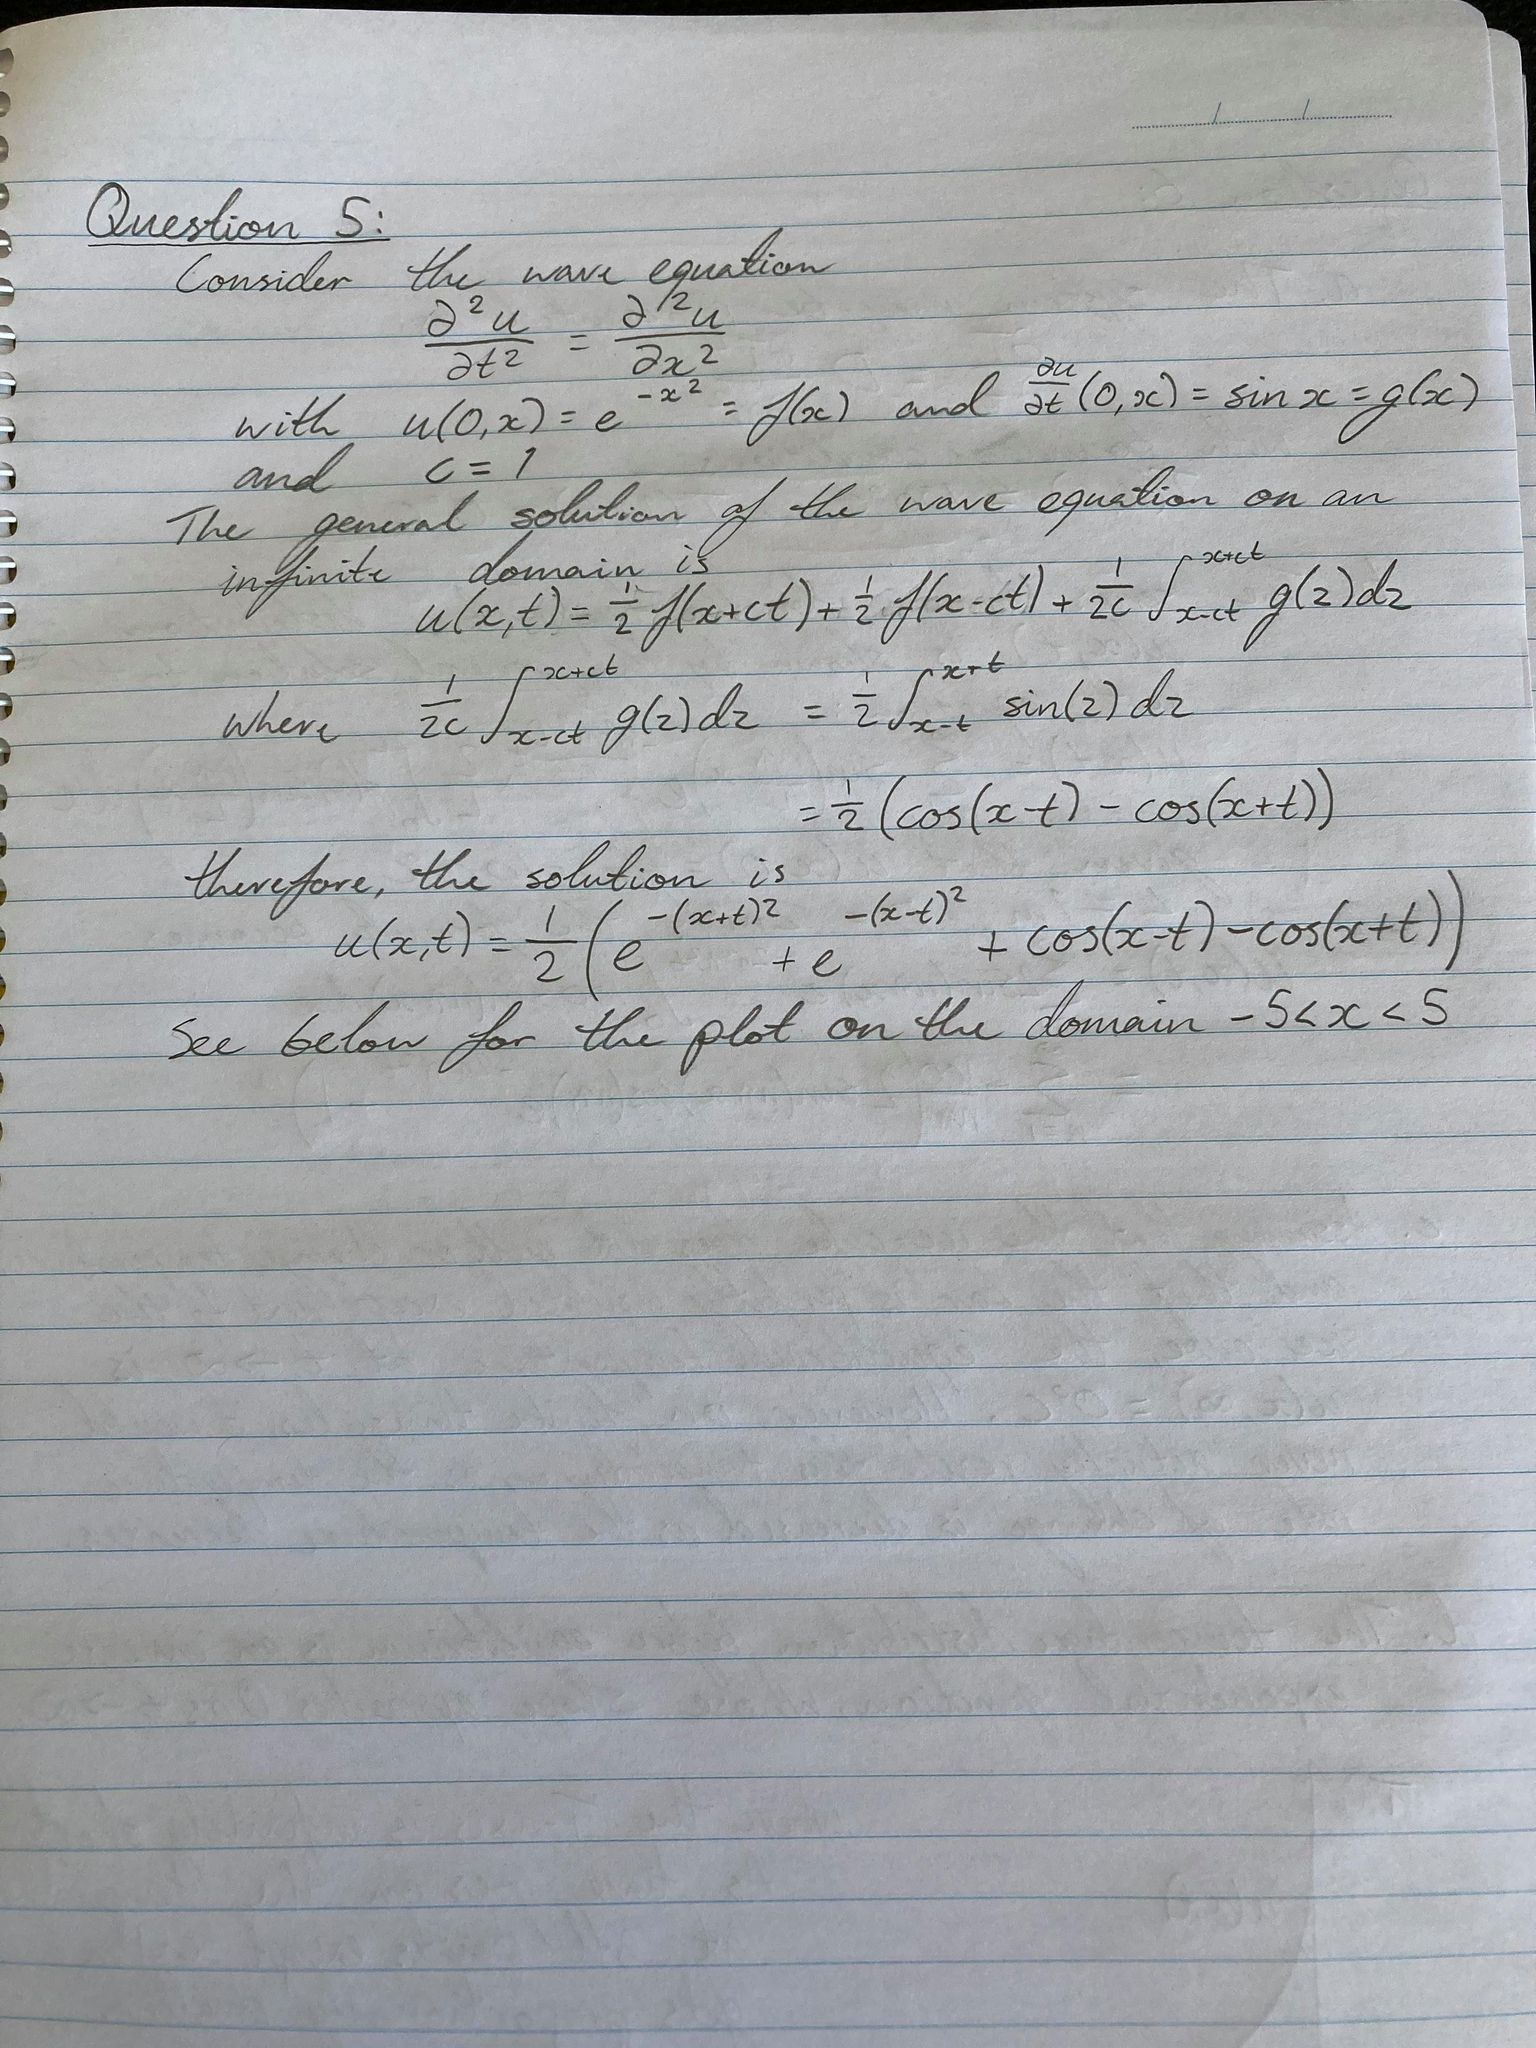 Question 5:
Consider the wave equation
∂²u/∂t² = ∂²u/∂x²
with u(0,x) = e^{-x²} = f(x) and ∂u/∂t (0,x) = sin x = g(x)
and c = 1
The general solution of the wave equation on an
infinite domain is
u(x,t) = 1/2 f(x+ct) + 1/2 f(x-ct) + 1/2c ∫_{x-ct}^{x+ct} g(z)dz
where 1/2c ∫_{x-ct}^{x+ct} g(z)dz = 1/2 ∫_{x-t}^{x+t} sin(z)dz
= 1/2 (cos(x-t) - cos(x+t))
therefore, the solution is
u(x,t) = 1/2 (e^{-(x+t)²} + e^{-(x-t)²} + cos(x-t) - cos(x+t))
see below for the plot on the domain -5<x<5